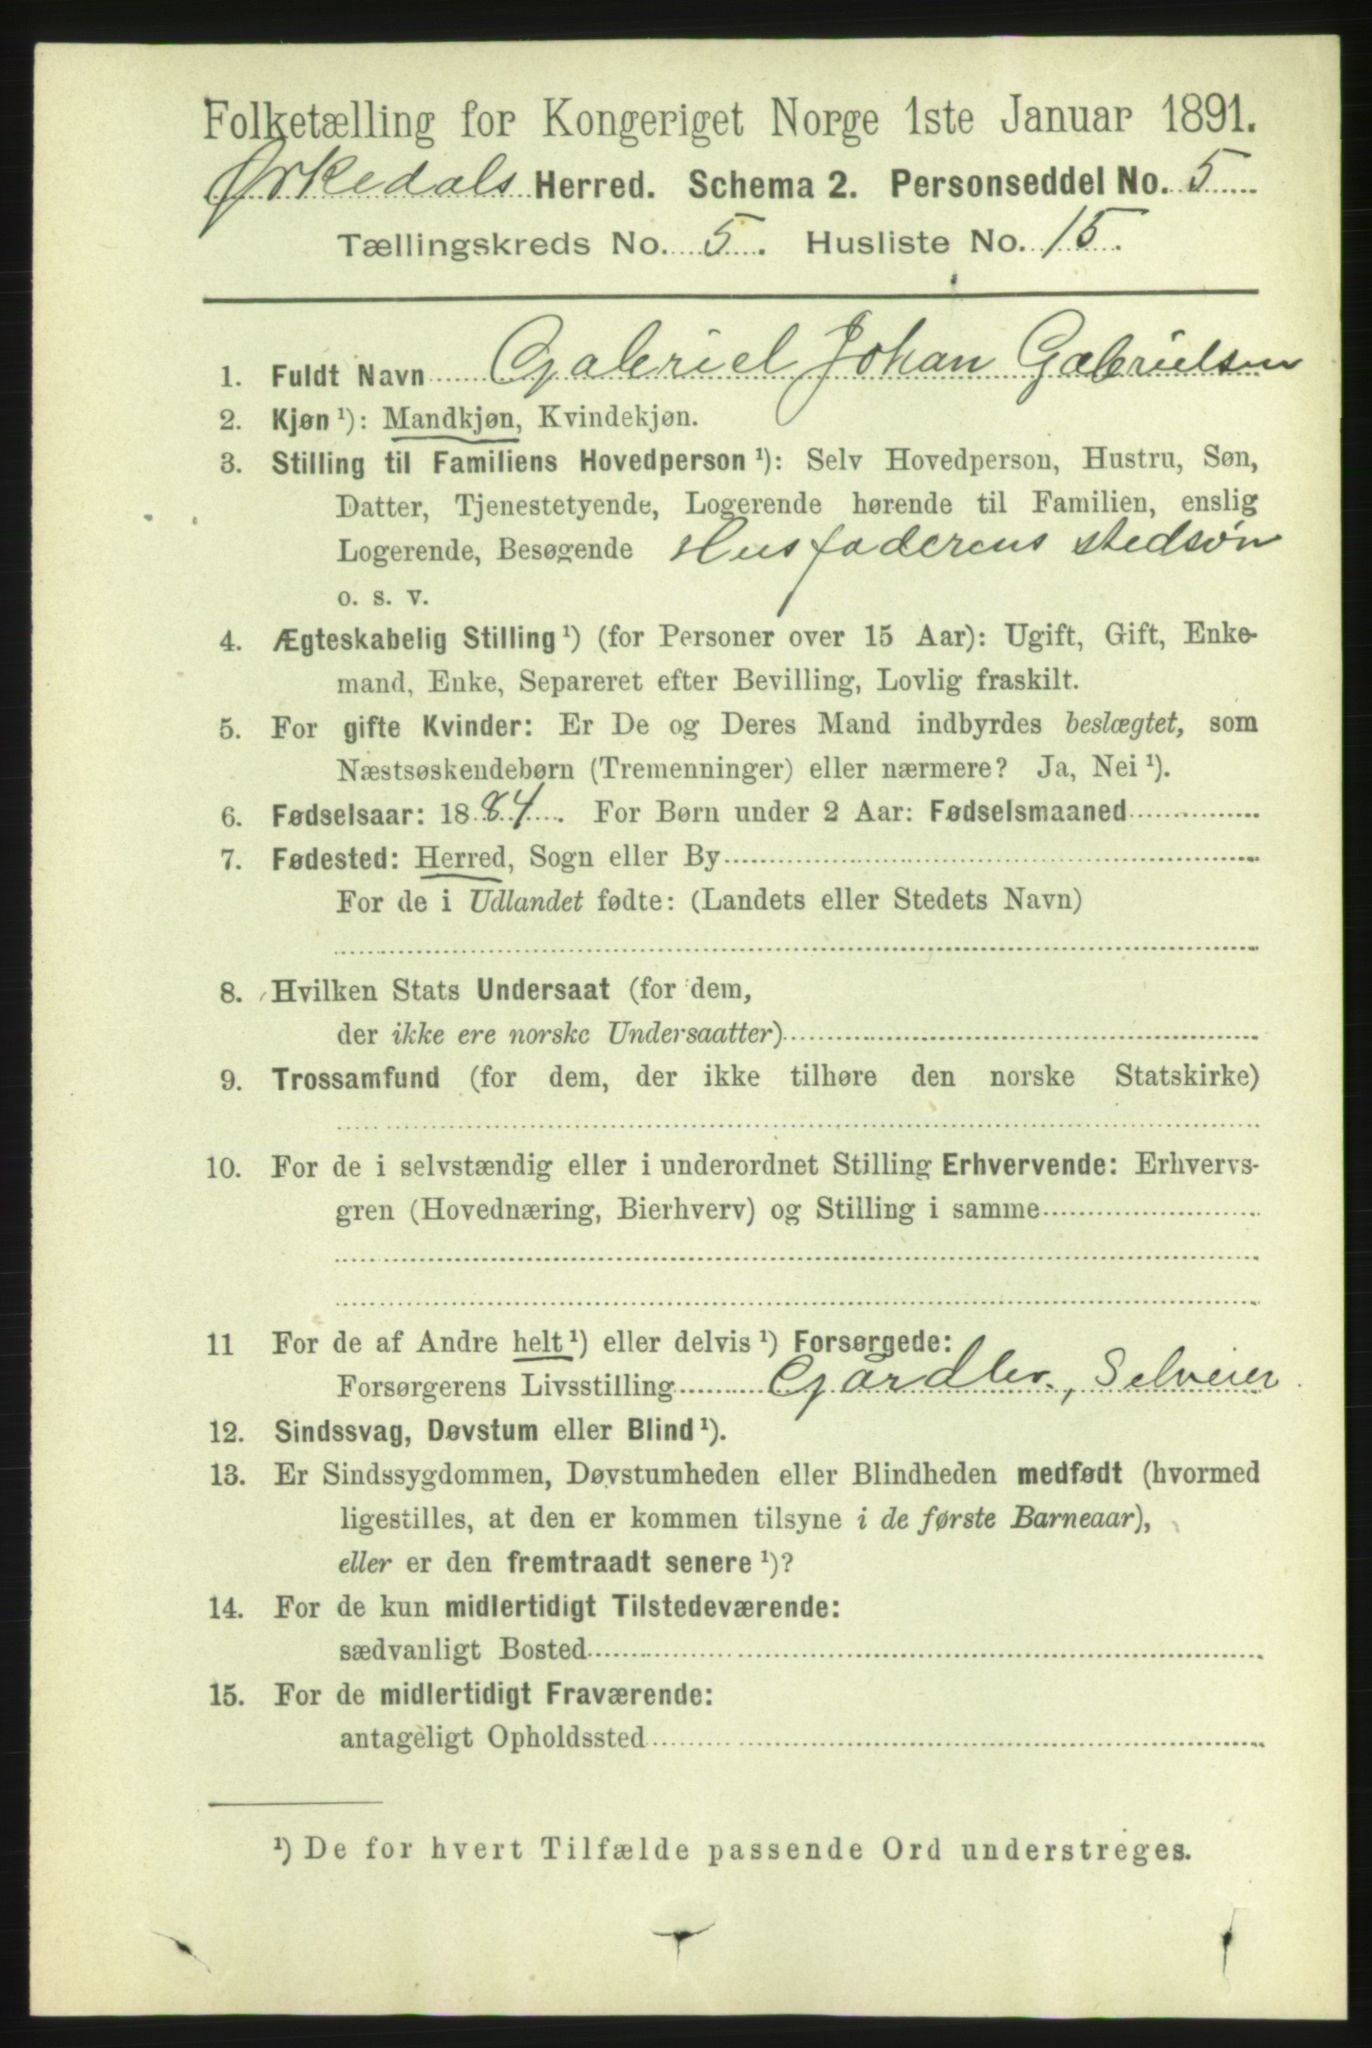 Folketælling for Kongeriget Norge 1ste Januar 1891.
Ørkedals Herred. Schema 2. Personseddel No. 5
Tællingskreds No. 5. Husliste No. 15.
1. Fuldt Navn Gabriel Johan Gabrielsen
2. Kjøn ¹): Mandkjøn, Kvindekjøn.
3. Stilling til Familiens Hovedperson ¹): Selv Hovedperson, Hustru, Søn,
Datter, Tjenestetyende, Logerende hørende til Familien, enslig
Logerende, Besøgende Husfaderens stedsøn
o. s. v.
4. Ægteskabelig Stilling ¹) (for Personer over 15 Aar): Ugift, Gift, Enke-
mand, Enke, Separeret efter Bevilling, Lovlig fraskilt.
5. For gifte Kvinder: Er De og Deres Mand indbyrdes beslægtet, som
Næstsøskendebørn (Tremenninger) eller nærmere? Ja, Nei ¹).
6. Fødselsaar: 1884. For Børn under 2 Aar: Fødselsmaaned
7. Fødested: Herred, Sogn eller By
For de i Udlandet fødte: (Landets eller Stedets Navn)
8. Hvilken Stats Undersaat (for dem,
der ikke ere norske Undersaatter)
9. Trossamfund (for dem, der ikke tilhøre den norske Statskirke)
10. For de i selvstændig eller i underordnet Stilling Erhvervende: Erhvervs-
gren (Hovednæring, Bierhverv) og Stilling i samme
11 For de af Andre helt ¹) eller delvis ¹) Forsørgede:
Forsørgerens Livsstilling Gårdbr., Selveier
12. Sindssvag, Døvstum eller Blind ¹).
13. Er Sindssygdommen, Døvstumheden eller Blindheden medfødt (hvormed
ligestilles, at den er kommen tilsyne i de første Barneaar),
eller er den fremtraadt senere ¹)?
14. For de kun midlertidigt Tilstedeværende:
sædvanligt Bosted
15. For de midlertidigt Fraværende:
antageligt Opholdssted
¹) De for hvert Tilfælde passende Ord understreges.